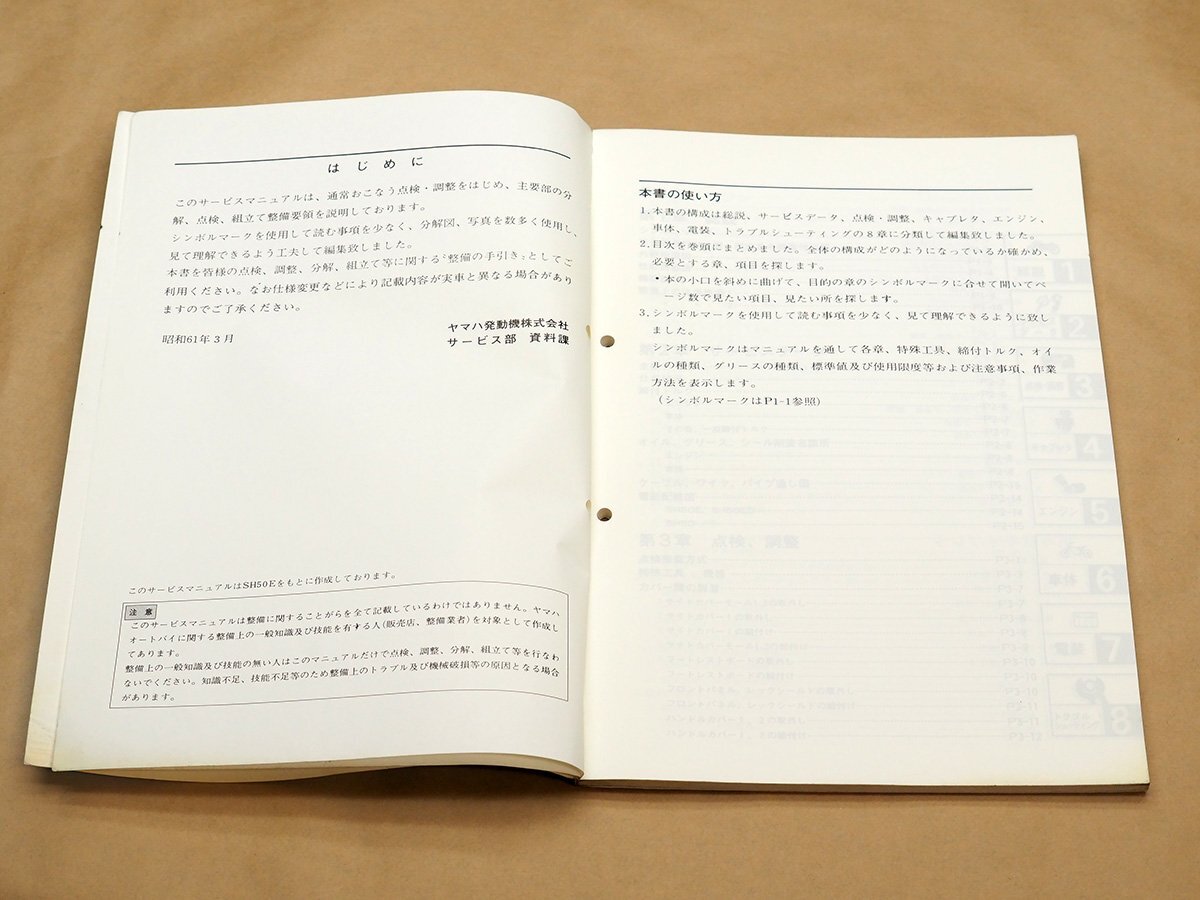 はじめに
このサービスマニュアルは、通常おこなう点検・調整をはじめ、主要部の分
解、点検、組立て整備要領を説明しております。
シンボルマークを使用して読む事項を少なく、分解図、写真を数多く使用し、
見て理解できるよう工夫して編集致しました。
本書を皆様の点検、調整、分解、組立て等に関する“整備の手引き”としてご
利用ください。なお仕様変更などにより記載内容が実車と異なる場合があり
ますのでご了承ください。
昭和61年3月
ヤマハ発動機株式会社
サービス部 資料課
このサービスマニュアルはSH50Eをもとに作成しております。
注意
このサービスマニュアルは整備に関することがらを全て記載しているわけではありません。ヤマハ
オートバイに関する整備上の一般知識及び技能を有する人(販売店、整備業者)を対象として作成し
てあります。
整備上の一般知識及び技能の無い人はこのマニュアルだけで点検、調整、分解、組立て等を行なわ
ないでください。知識不足、技能不足等のため整備上のトラブル及び機械破損等の原因となる場合
があります。
本書の使い方
1.本書の構成は総説、サービスデータ、点検・調整、キャブレタ、エンジン、
車体、電装、トラブルシューティングの8章に分類して編集致しました。
2.目次を巻頭にまとめました。全体の構成がどのようになっているか確かめ、
必要とする章、項目を探します。
・本の小口を斜めに曲げて、目的の章のシンボルマークに合せて開いてペ
ージ数で見たい項目、見たい所を探します。
3.シンボルマークを使用して読む事項を少なく、見て理解できるように致し
ました。
シンボルマークはマニュアルを通して各章、特殊工具、締付トルク、オイ
ルの種類、グリースの種類、標準値及び使用限度等および注意事項、作業
方法を表示します。
(シンボルマークはP1-1参照)
第3章 点検、調整